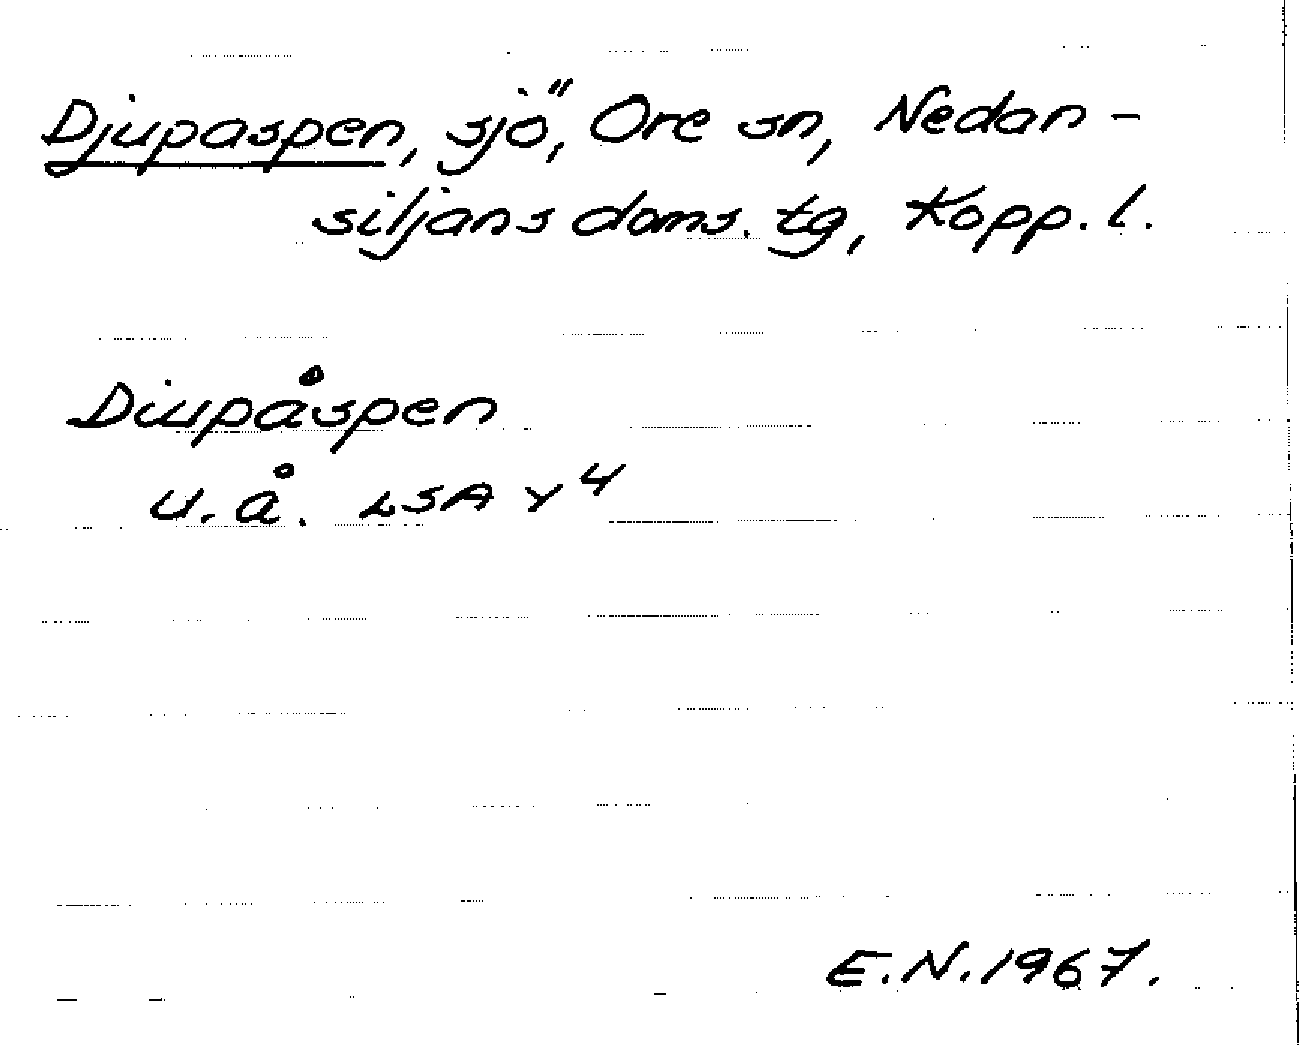 Djupaspen, sjö, Ore sn, Nedan-
siljans doms. tg, Kopp. l.
Diupåspen
u. å. LSA Y4
E.N. 1967.